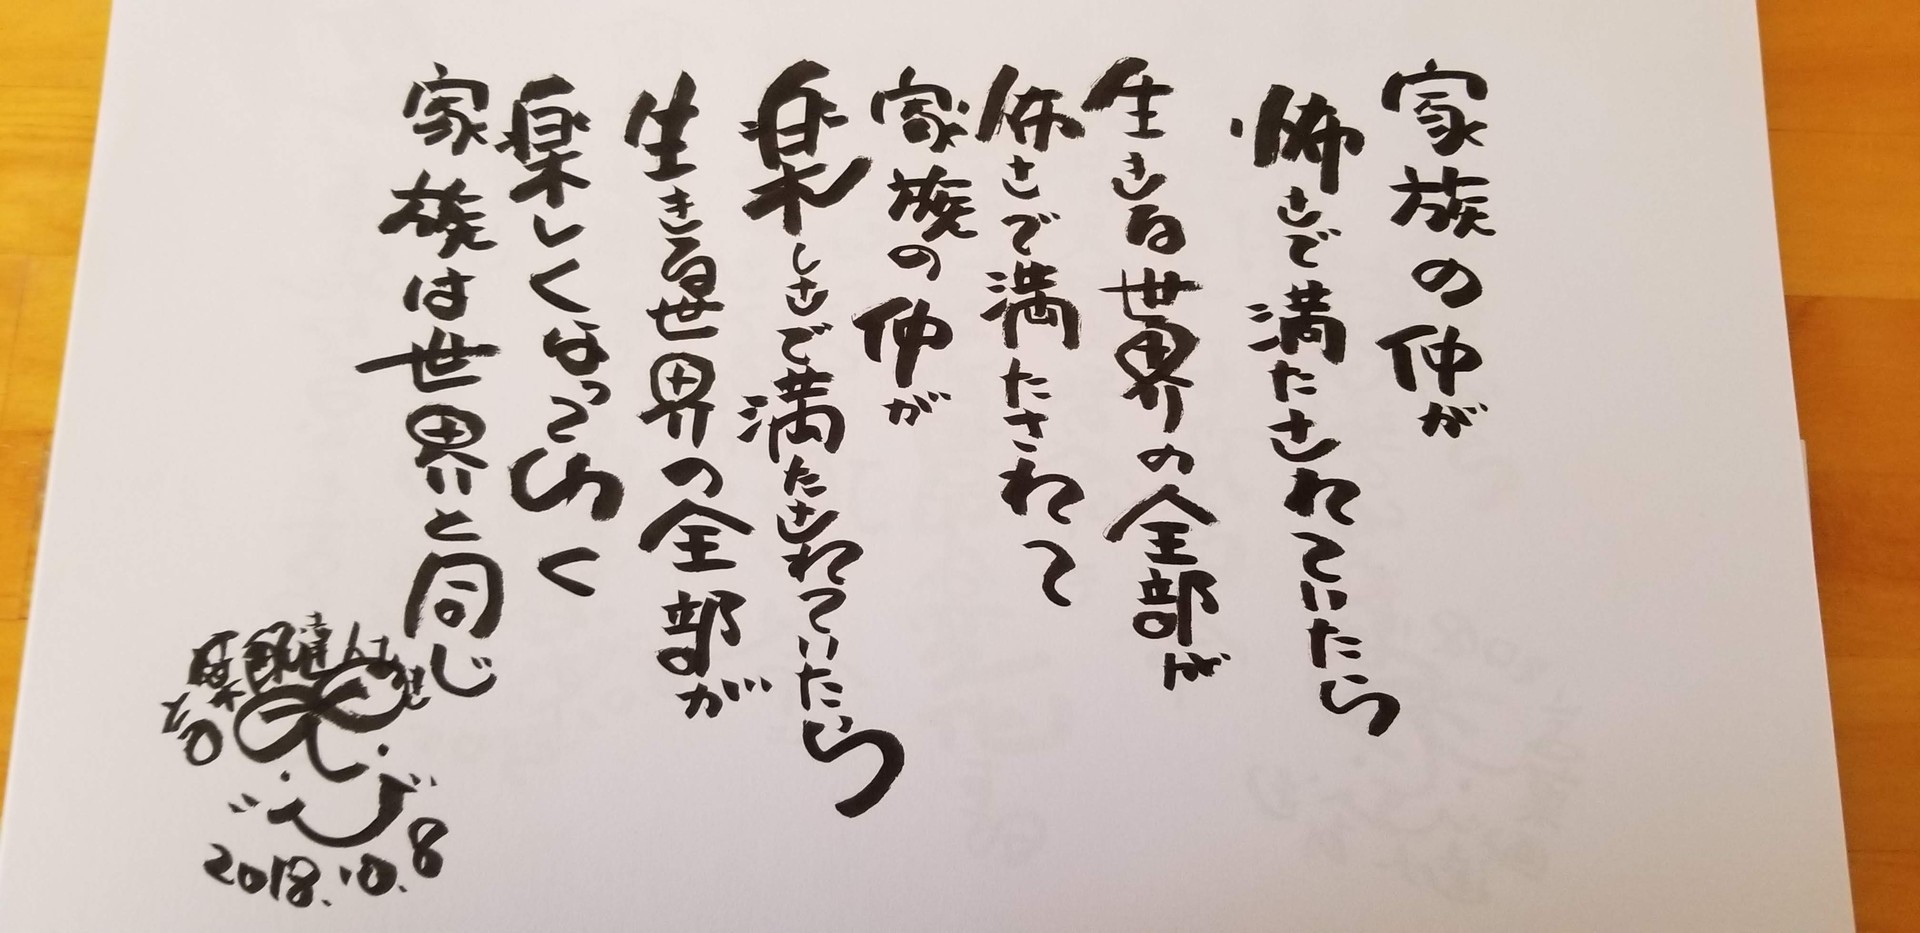 家族の仲が
怖さで満たされていたら
生きる世界の全部が
怖さで満たされて
家族の仲が
楽しさで満たされていたら
生きる世界の全部が
楽しくなっていく
家族は世界と同じ
2018.10.8